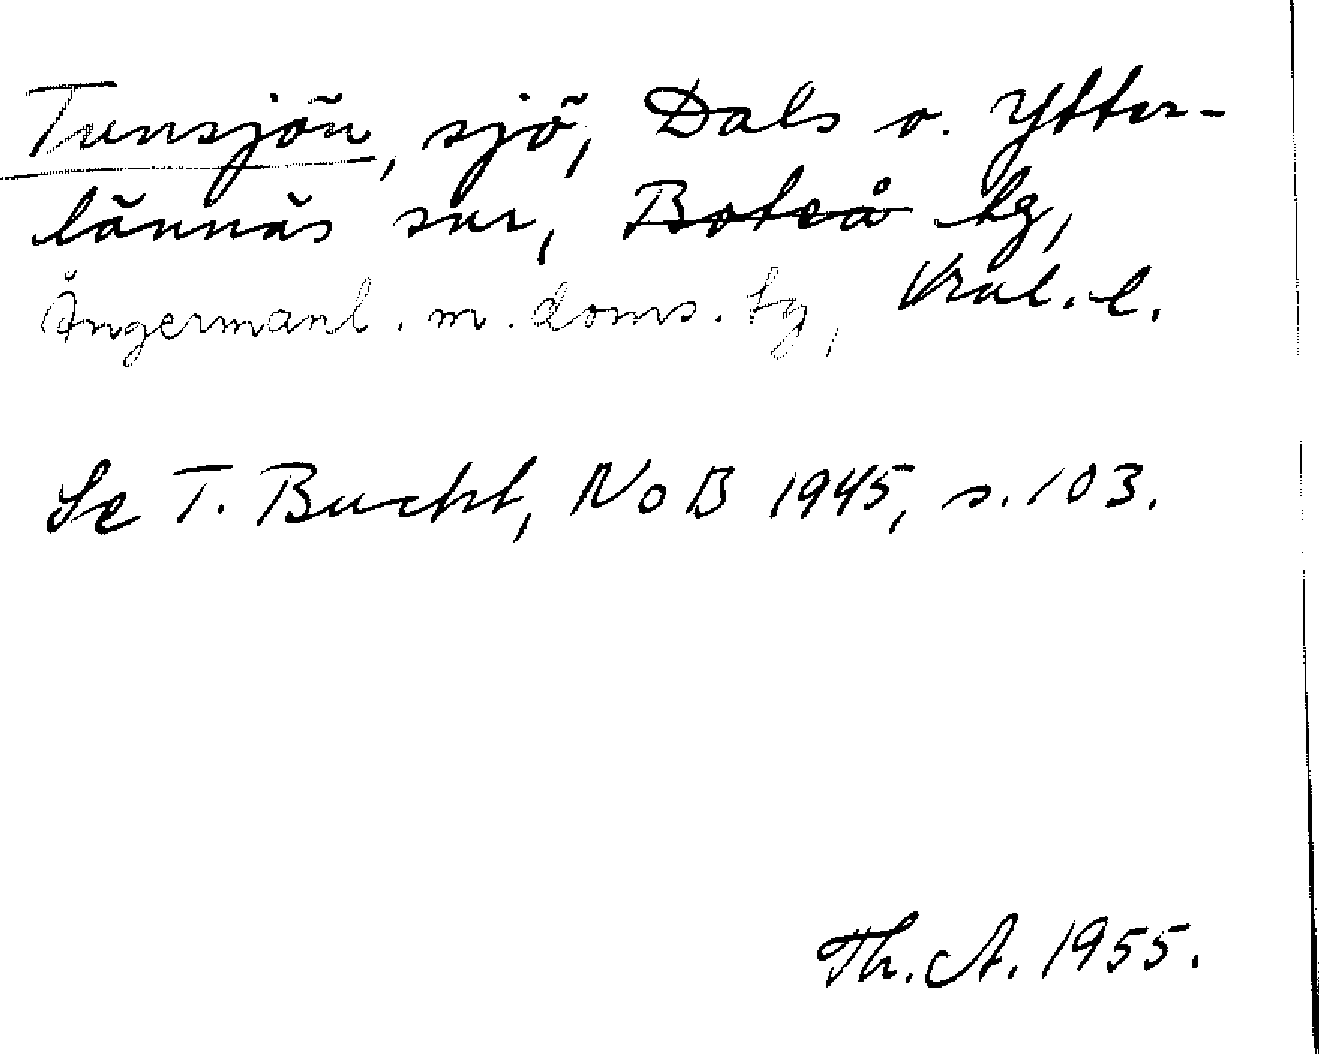 Tunsjön, sjö, Dals o. Ytter-
lännäs snr, Boteå tg,
Ångermanl. m. doms. tg, Vnl. l.
Se T. Bucht, NoB 1945, s. 103.
Th. A. 1955.